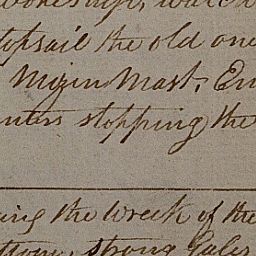 topsail the old one
Mizen Mast, En
nters stopping the
ing the Wreck of the
strong Gales